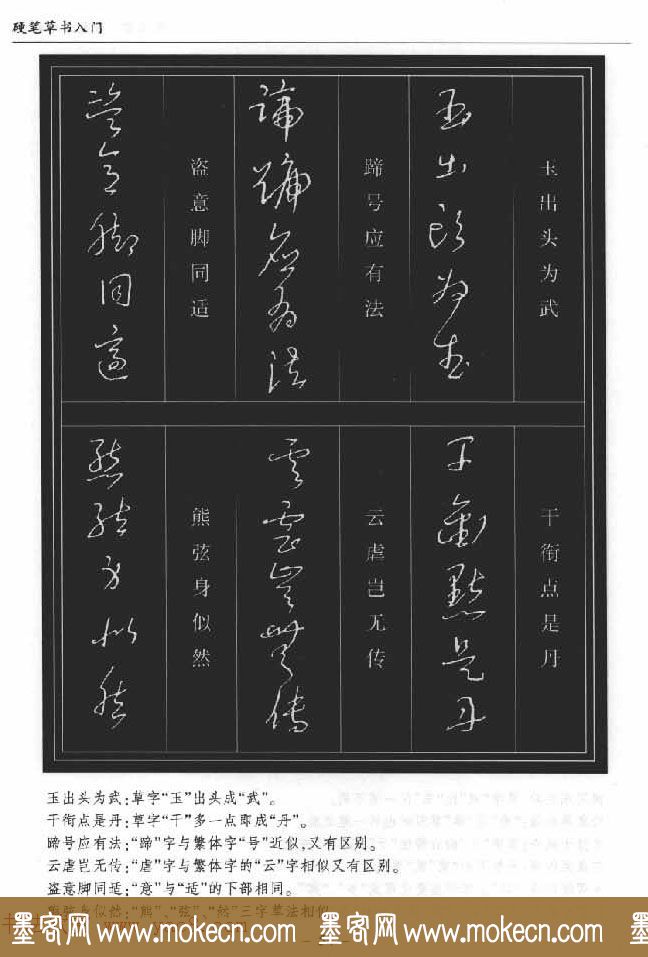 硬笔草书入门
玉出头为武
蹄号应有法
盗意脚同适
干衔点是丹
云虐岂无传
熊弦身似然
玉出头为武:草字“玉”出头成“武”。
干衔点是丹:草字“干”多一点即成“丹”。
蹄号应有法:“蹄”字与繁体字“号”近似,又有区别。
云虐岂无传:“虐”字与繁体字的“云”字相似又有区别。
盗意脚同适:“意”与“适”的下部相同。
熊弦身似然:“熊”、“弦”、“然”三字草法相似
墨客网 www.mokecn.com 墨客网 www.mokecn.com